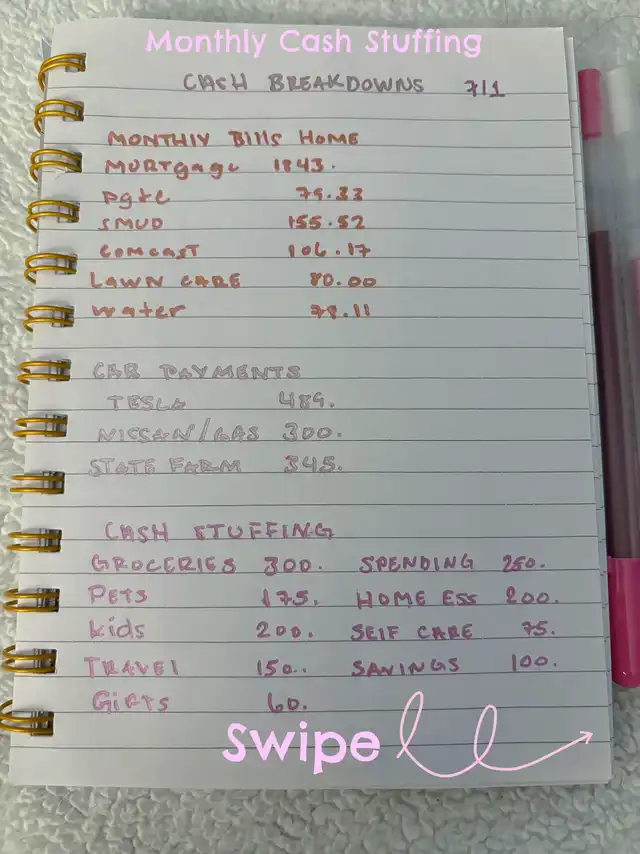 Monthly Cash Stuffing
CASH BREAKDOWNS 7/1
MONTHLY Bills HOME
MORTgage 1843.
pg&e 79.33
SMUD 155.52
COMCAST 106.17
LAWN CARE 80.00
Water 78.11
CAR PAYMENTS
TESLA 489.
NISSAN/GAS 300.
STATE FARM 345.
CASH STUFFING
GROCERIES 300. SPENDING 250.
PETS 175. HOME ESS 200.
kids 200. SELF CARE 75.
TRAVEL 150. SAVINGS 100.
GIFTS 60.
Swipe